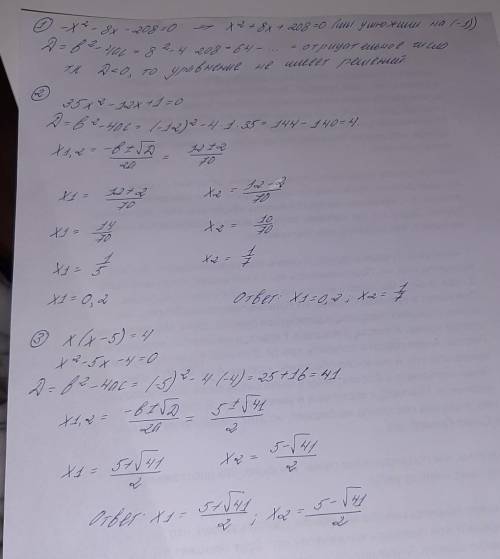 ① -x² - 8x - 208 = 0 → x² + 8x + 208 = 0 (мы умножили на (-1))
D = b² - 4ac = 8² - 4·208 = 64 - ... = отрицательное число
тк D<0, то уравнение не имеет решений
②
35x² - 12x + 1 = 0
D = b² - 4ac = (-12)² - 4·1·35 = 144 - 140 = 4.
x1,2 = (-b ± √D)/2a = (12 ± 2)/70
x1 = (12+2)/70 x2 = (12-2)/70
x1 = 14/70 x2 = 10/70
x1 = 1/5 x2 = 1/7
x1 = 0,2 Ответ: x1 = 0,2; x2 = 1/7
③ x(x-5) = 4
x² - 5x - 4 = 0
D = b² - 4ac = (-5)² - 4·(-4) = 25 + 16 = 41.
x1,2 = (-b ± √D)/2a = (5 ± √41)/2
x1 = (5+√41)/2 x2 = (5-√41)/2
Ответ: x1 = (5+√41)/2; x2 = (5-√41)/2